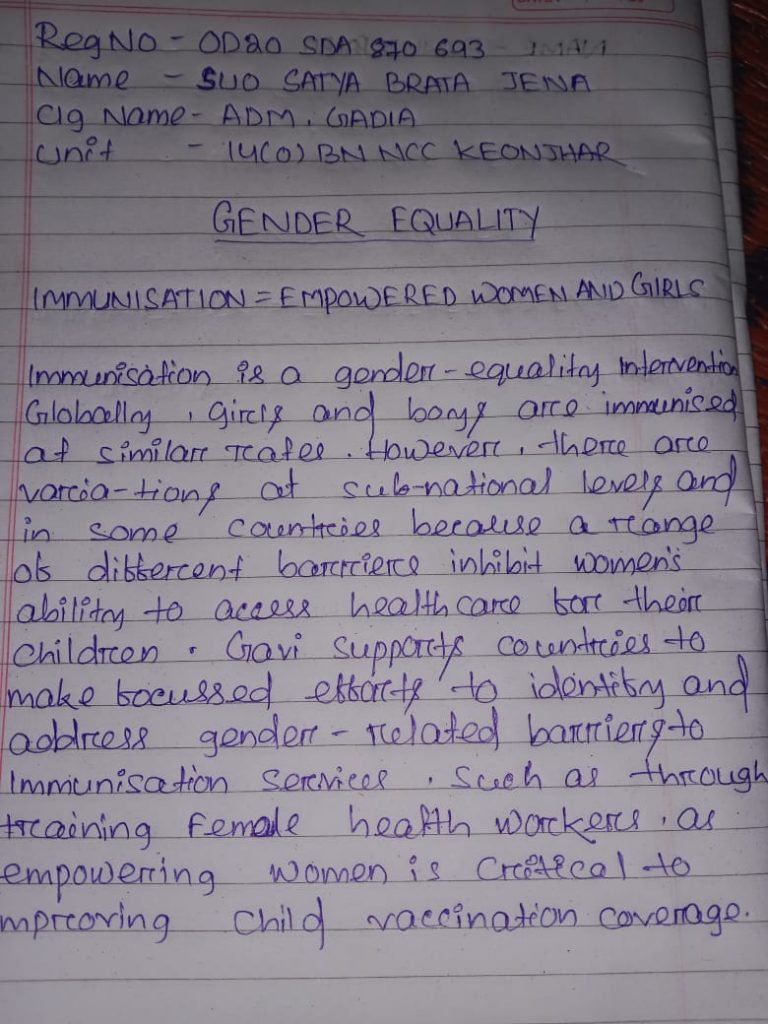 Reg No - OD20 SDA 870 693
Name - SUO SATYA BRATA JENA
Clg Name - ADM. GADIA
Unit - 14(O) BN NCC KEONJHAR
GENDER EQUALITY
IMMUNISATION = EMPOWERED WOMEN AND GIRLS
Immunisation is a gender-equality intervention
Globally, girls and boys are immunised
at similar rates. However, there are
varia-tions at sub-national levels and
in some countries because a range
of different barriers inhibit women's
ability to access health care for their
children. Gavi supports countries to
make focussed efforts to identify and
address gender-related barriers to
immunisation services. Such as through
training female health workers. as
empowering women is critical to
mproving child vaccination coverage.